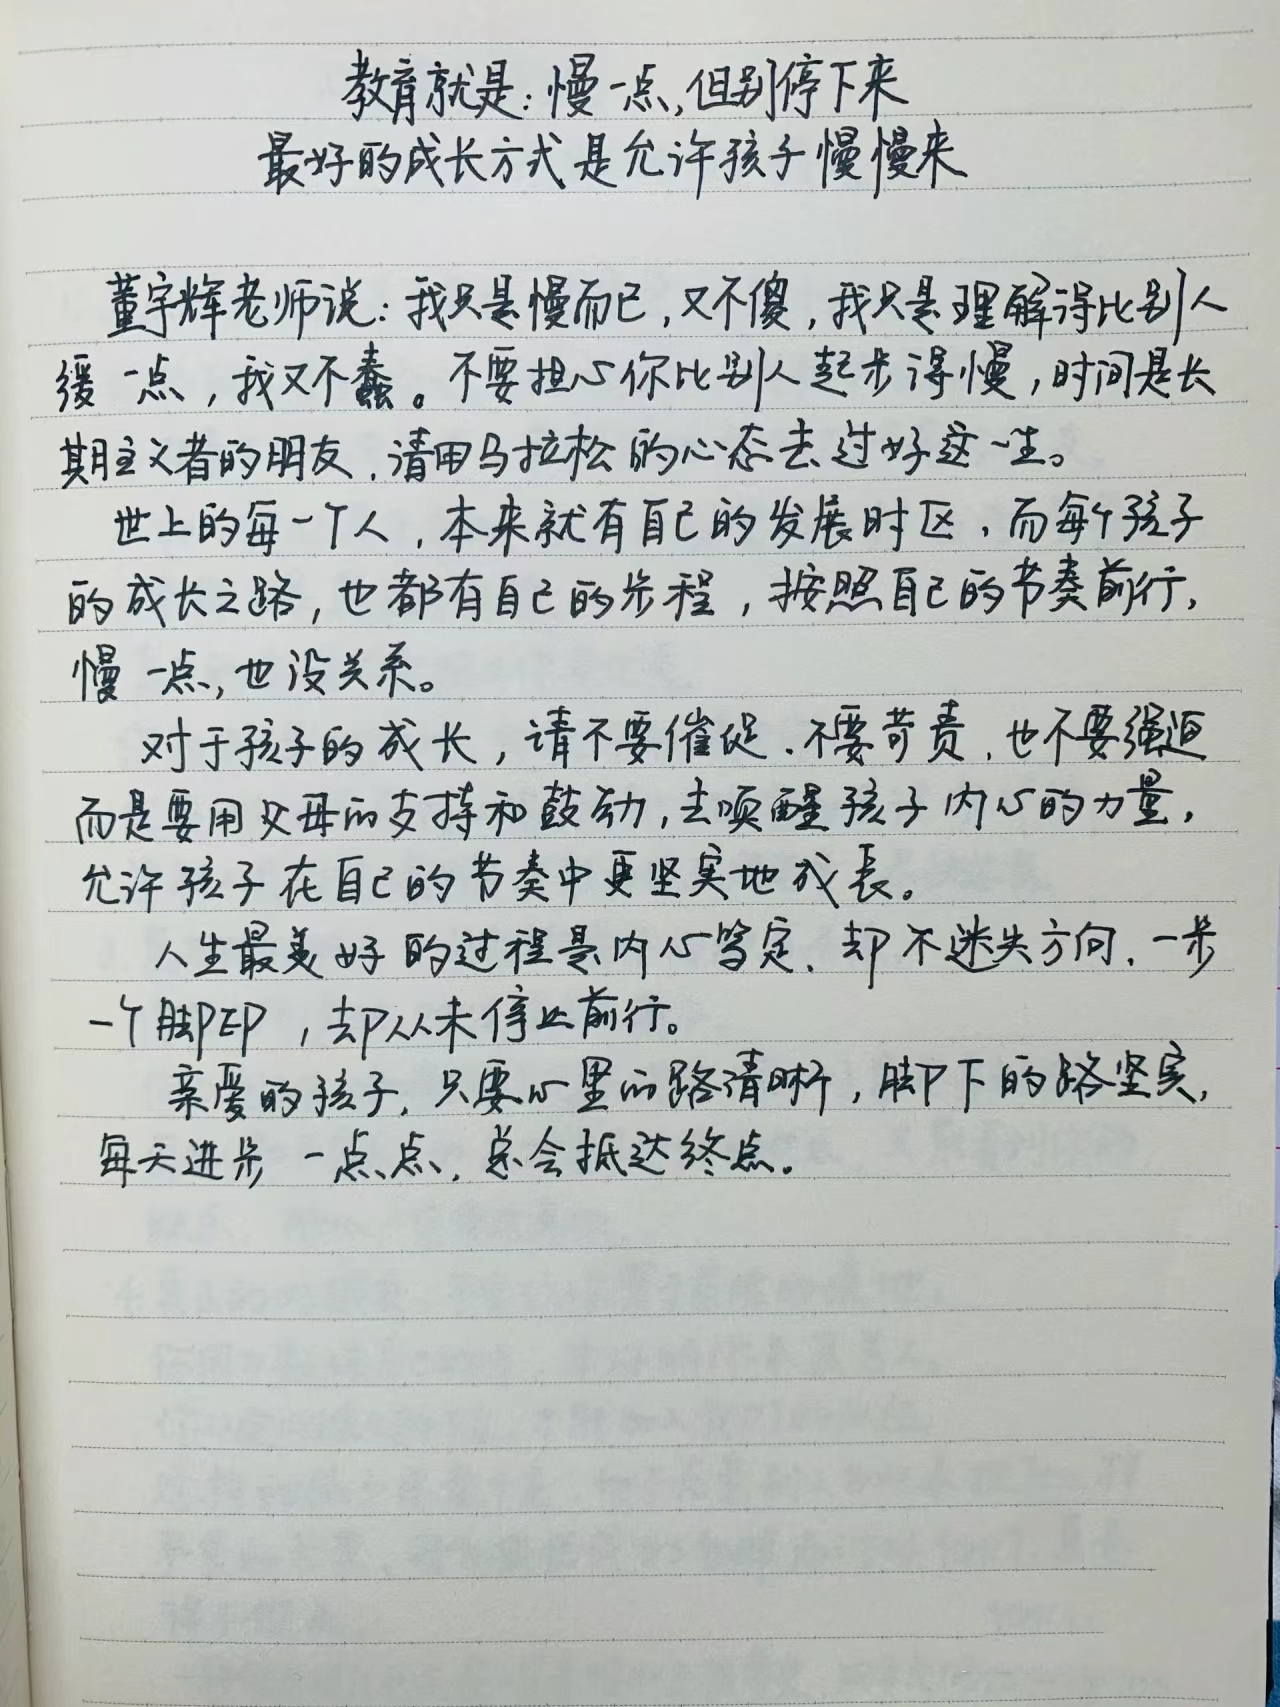 教育就是：慢一点，但别停下来
最好的成长方式是允许孩子慢慢来
董宇辉老师说：我只是慢而已，又不傻，我只是理解得比别人
缓一点，我又不蠢。不要担心你比别人起步得慢，时间是长
期主义者的朋友，请用马拉松的心态去过好这一生。
世上的每一个人，本来就有自己的发展时区，而每个孩子
的成长之路，也都有自己的步程，按照自己的节奏前行，
慢一点，也没关系。
对于孩子的成长，请不要催促、不要苛责，也不要强迫
而是要用父母的支持和鼓动，去唤醒孩子内心的力量，
允许孩子在自己的节奏中更坚实地成長。
人生最美好的过程是内心笃定、却不迷失方向，一步
一个脚印，却从未停止前行。
亲爱的孩子，只要心里的路清晰，脚下的路坚实，
每天进步一点点，总会抵达终点。